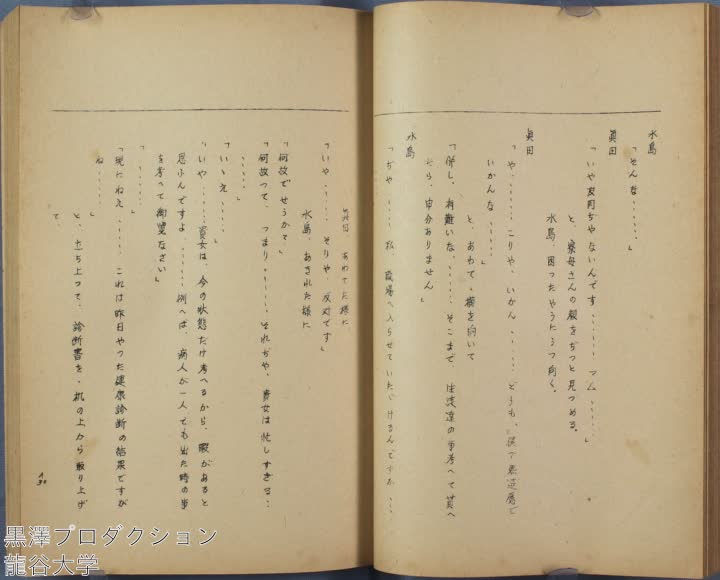 水島
「そんな……」
眞田
「いや世辞ぢやないんです……フム……」
と、寮母さんの顔をぢつと見つめる。
水島、困つたやうにうつ向く。
眞田
「や、……こりや、いかん……どうも、僕
いかんな……」
と、あわて、横を向いて
「併し、有難いな、……そこまで、生活達の事考へて貰へ
たら、申分ありません」
水島
「ぢや……私、職場へ入らせていたゞけるんですか……
眞田　あわてた様に
「いや、……そりや、反対です」
水島、あきれた様に
「何故でせうか?」
「何故つて、つまり……それぢや、貴女は忙しすぎる……
……」
「いゝえ……」
「いや、……貴女は、今の状態だけ考へるから、暇があると
思ふんですよ、……例へば、病人が一人でも出た時の事
を考へて御覧なさい」
「……」
「現にねえ、……これは昨日やつた健康診断の結果ですが
ね……」
と、立ち上つて、診断書を、机の上から取り上げ
て
A
30
黒澤プロダクション
龍谷大学